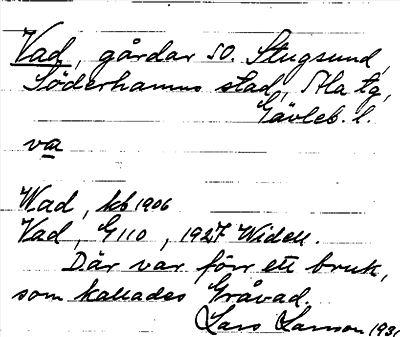 Vad, gårdar SO. Stugsund,
Söderhamns stad, Ala tg,
Gävleb. l.
va
Wad, kb 1906
Vad, G110, 1927 Widell.
Där var förr ett bruk,
som kallades Gråvad.
Lars Larsson 1931